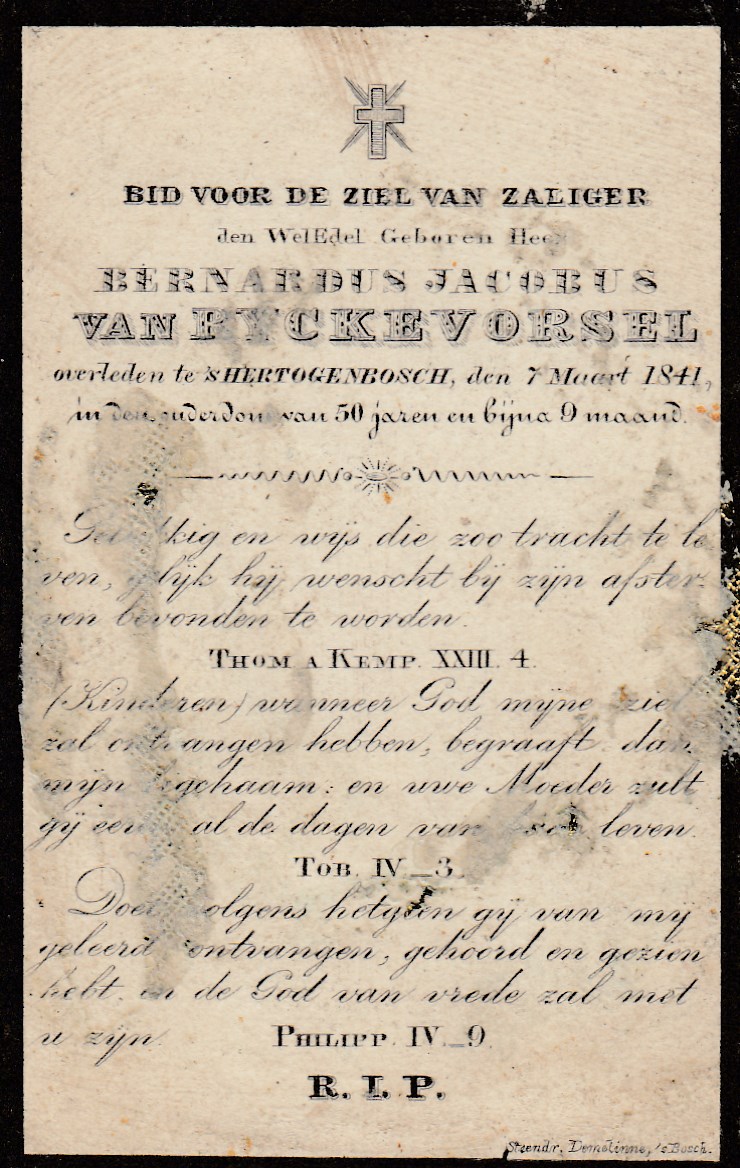 BID VOOR DE ZIEL VAN ZALIGER
den WelEdel Geboren Heer
BERNARDUS JACOBUS
VAN RYCKEVORSEL
overleden te 'sHERTOGENBOSCH, den 7 Maart 1841,
in den ouderdom van 50 jaren en bijna 9 maand.
Gelukkig en wijs die zoo tracht te le
ven, gelijk hij wenscht bij zijn afster-
ven bevonden te worden.
THOM A KEMP. XXIII. 4.
(Kinderen) wanneer God mijne ziel
zal ontvangen hebben, begraaft dan
mijn ligchaam: en uwe Moeder zult
gij eeren al de dagen van leven.
TOB. IV_3.
Doet volgens hetgeen gij van mij
geleerd ontvangen, gehoord en gezien
hebt. en de God van vrede zal met
u zijn. PHILIPP. IV_9
R. I. P.
Steendr. Demelinne, 'sBosch.